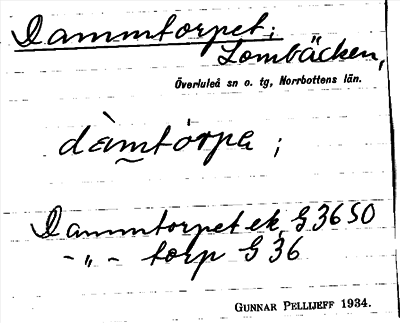 Dammtorpet;
Lombäcken,
Överluleå sn o. tg, Norrbottens län.
dàmtórpa ;
Dammtorpet ek. G 36 SO
- „ - torp G 36
GUNNAR PELLIJEFF 1934.